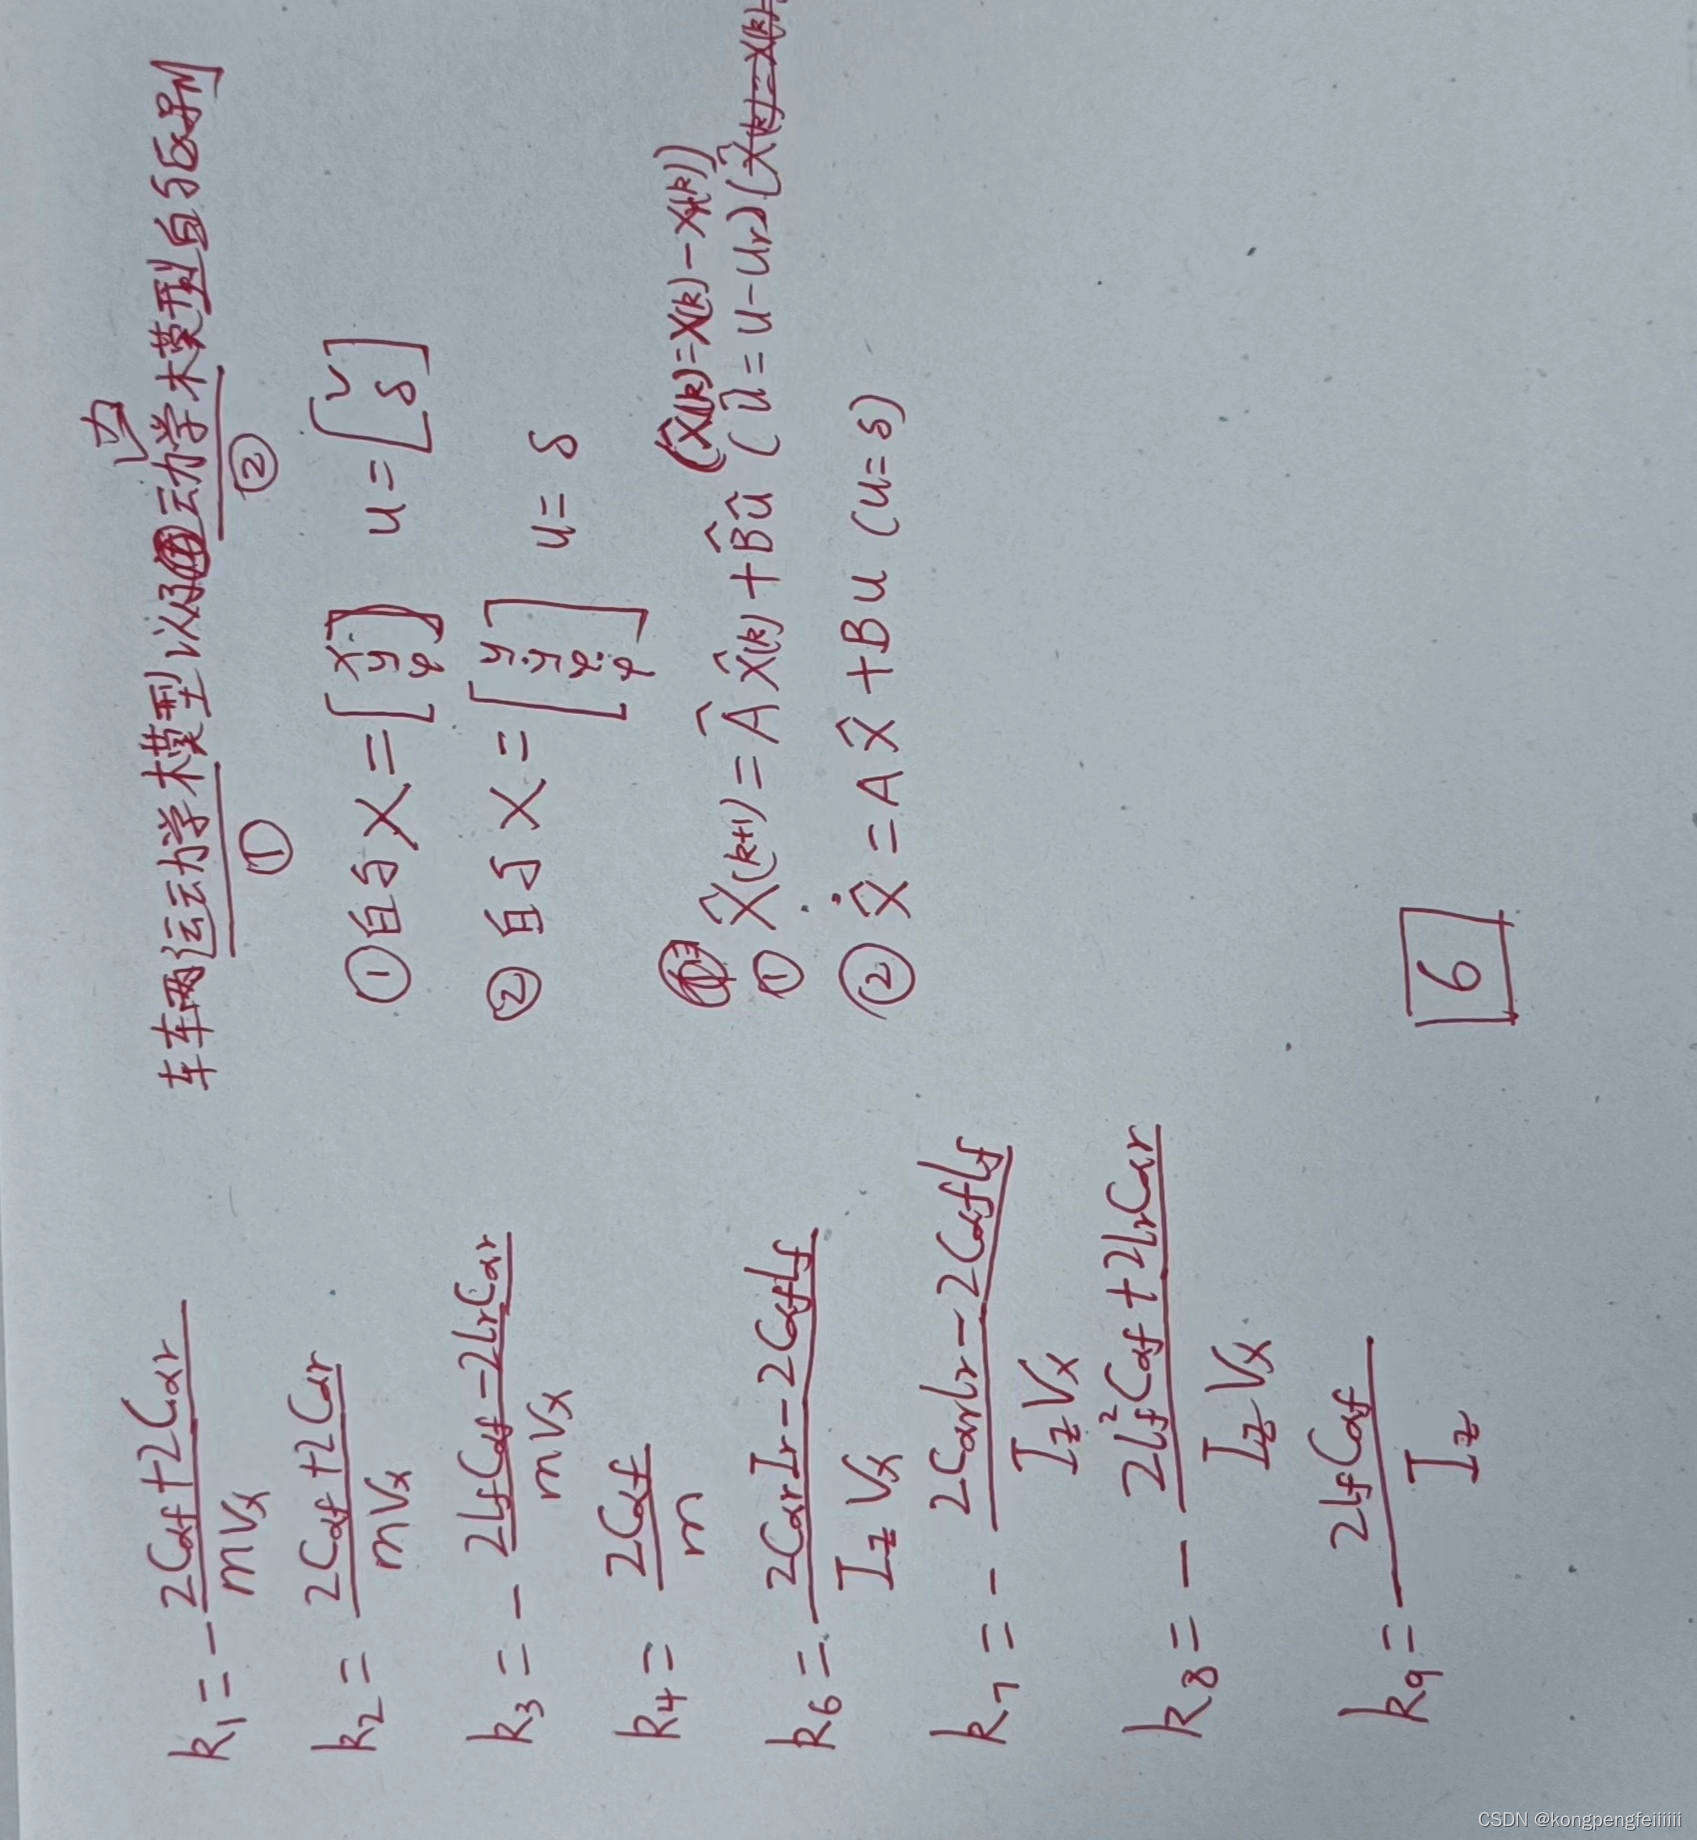 k₁ = - (2Cαf + 2Cαr) / (mVx)
k₂ = (2Cαf + 2Cαr) / (mVx)
k₃ = - (2lfCαf - 2lrCαr) / (mVx)
k₄ = 2Cαf / m
k₆ = (2CαrIr - 2Cαflf) / (IzVx)
k₇ = - (2Cαrlr - 2Cαflf) / (IzVx)
k₈ = - (2lf²Cαf + 2lrCαr) / (IzVx)
k₉ = 2lfCαf / Iz
力
车车两运动学木模型以及动学木模型与区别
① ②
① X = [x y φ] u = [v δ]
② X = [y ẏ φ φ̇] u = δ
(X̂(k) = X(k) - Xr(k))
① X̂(k+1) = Â X̂(k) + B̂û (û = u - ur) (X̂(k) = X(k)
② X̂̇ = A X̂ + B u (u = δ)
6
CSDN @kongpengfeiiiiii